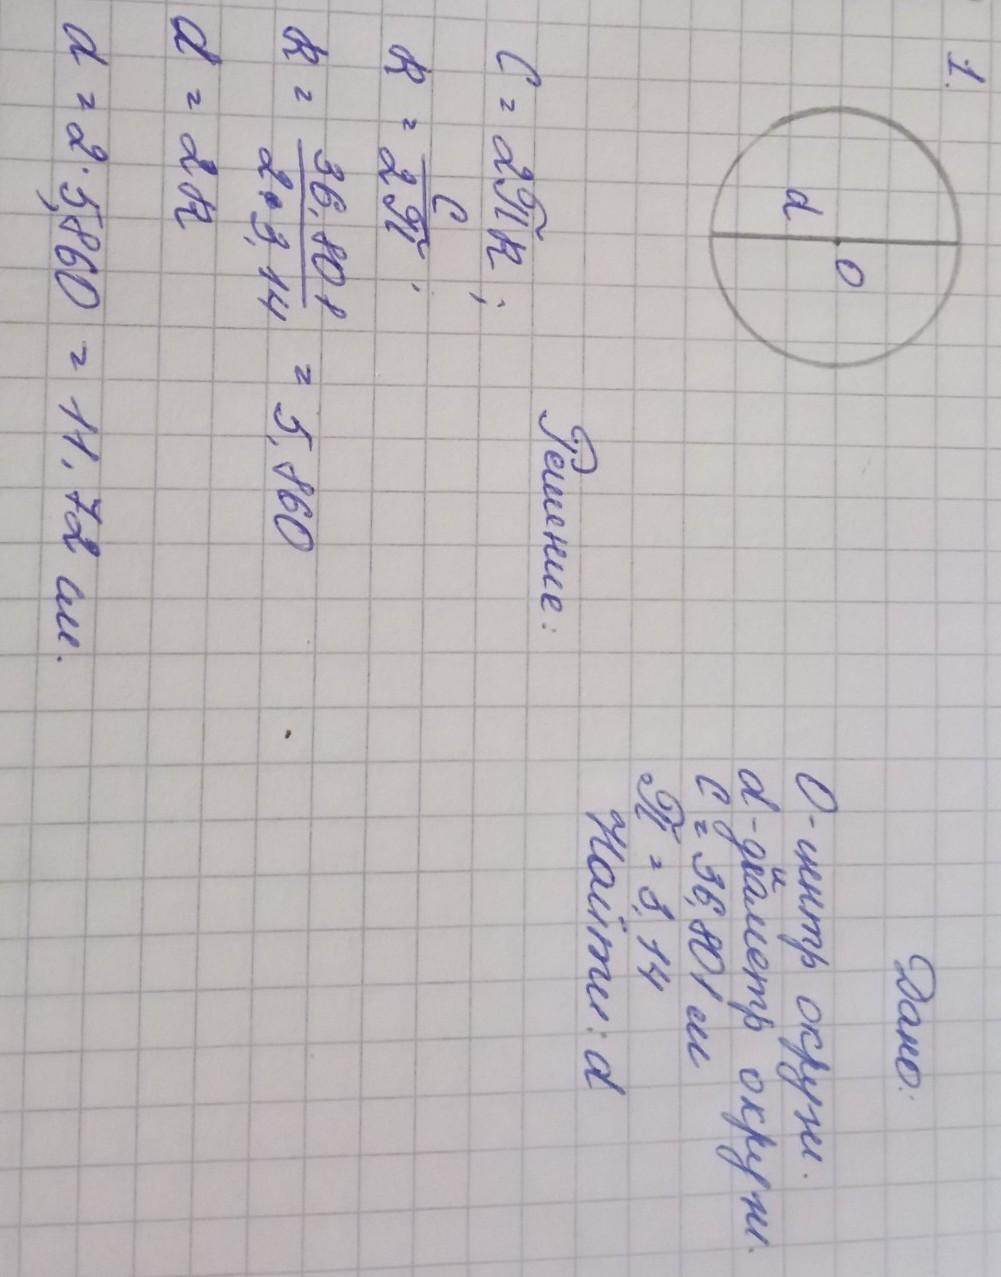 1.
d
O
Дано:
О-центр окружн.
d-диаметр окружн.
C = 36,801 см
П = 3,14
Найти: d
Решение:
C = 2ПR;
R = C / 2П;
R = 36,801 / 2•3,14 = 5,860
d = 2R
d = 2·5,860 = 11,72 см.